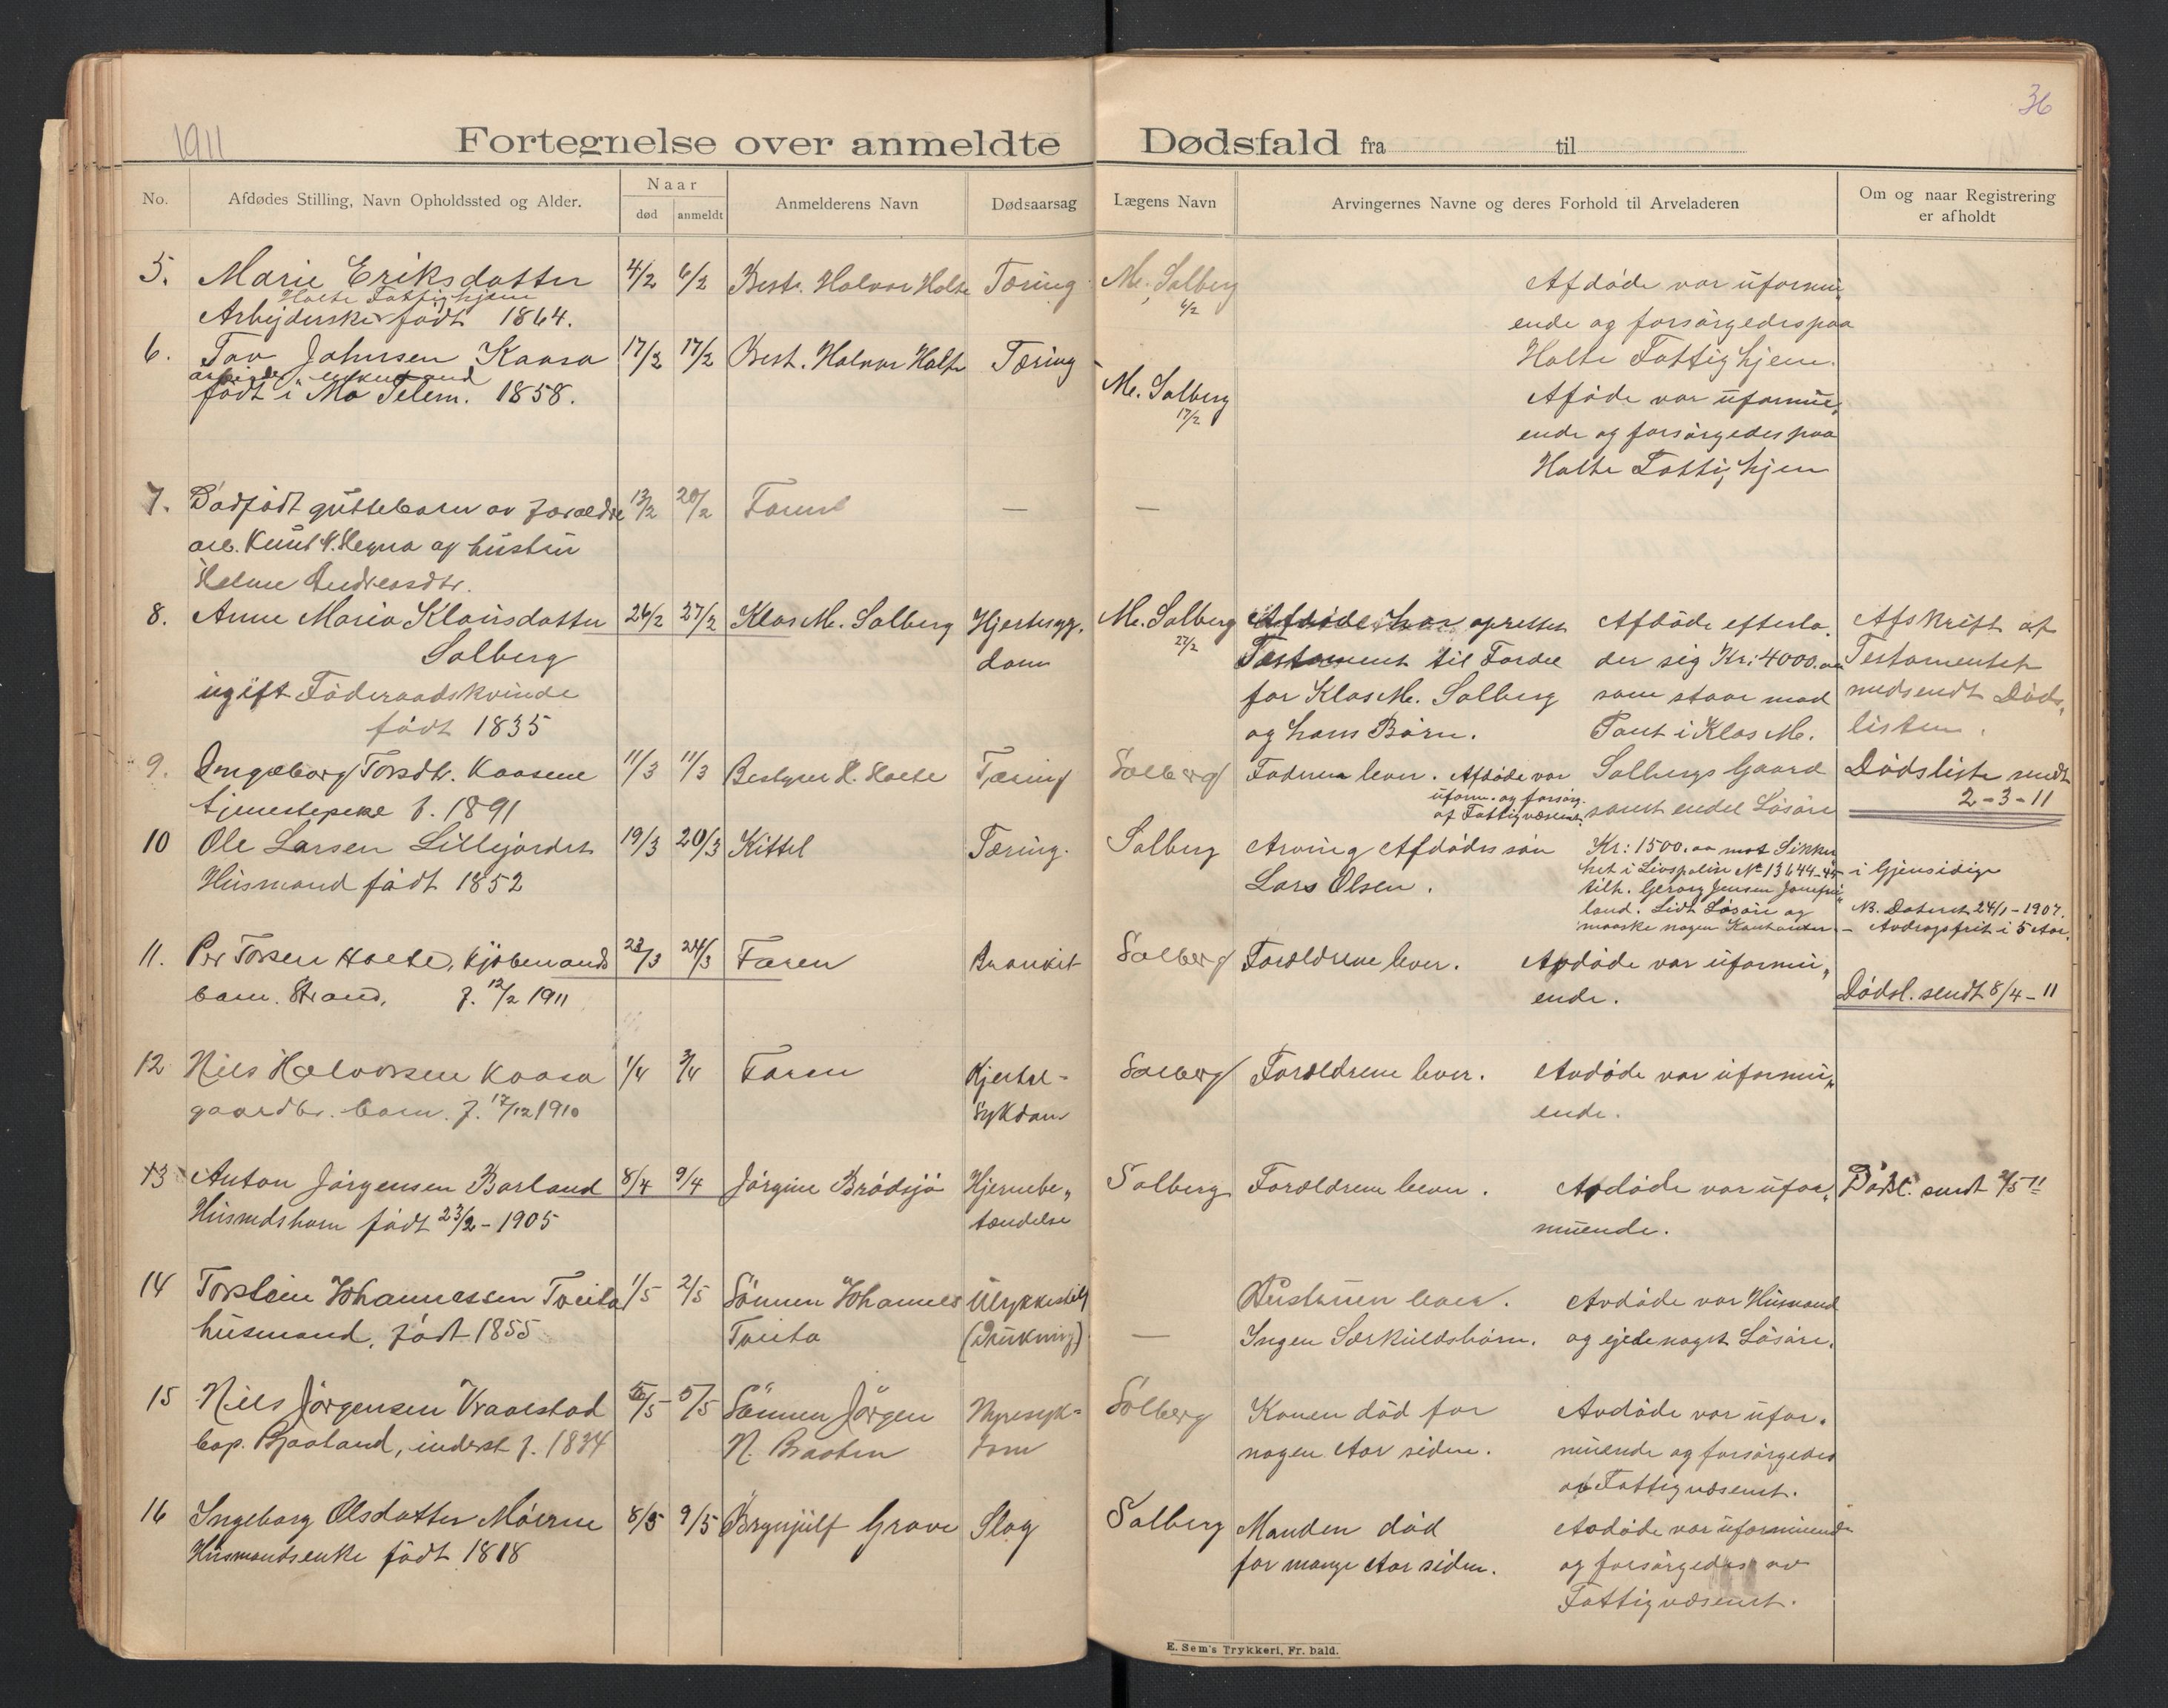 36
1911
Fortegnelse over anmeldte Dødsfald fra til
No.
Afdødes Stilling, Navn Opholdssted og Alder.
Naar
død
anmeldt
Anmelderens Navn
Dødsaarsag
Lægens Navn
Arvingernes Navne og deres Forhold til Arveladeren
Om og naar Registrering
er afholdt
5. Marie Eriksdatter 4/2 6/2 Bestr. Halvor Holte Tæring M. Solberg
6/2
Holte Fattighjem
Arbejderske født 1864.
Afdøde var uformu-
ende og forsørgedes paa
Holte Fattighjem.
6. Tov Johnsen Kaasa 17/2 17/2 Best. Halvor Holte Tæring M. Solberg
17/2
født i Mo Telem. 1858.
Afdøde var uformu-
ende og forsørgedes paa
Holte Fattighjem
7. Dødfødt guttebarn av forældre 13/2 20/2 Faren — —
arb. Knut N. Hegna og hustru
Helene Andreasdtr.
8. Anne Maria Klausdatter 26/2 27/2 Klas M. Solberg Hjertesyg- M. Solberg
27/2
dom
Solberg
ugift Føderaadskvinde
født 1835
Afdøde har oprettet
Testament til Fordel
for Klas M. Solberg
og hans Børn.
Afdøde efterla-
der sig Kr: 4000.00
som staar mod
Pant i Klas M.
Solbergs Gaard
samt endel Løsøre
Kr: 1500.00 mot Sikker
het i Livspolice No 13644-45 – i Gjensidige
tilh. Georg Jensen
land. Lidt Løsøre og
maaske nogen Kontanter. – Avdragsfrit i 5 Aar.
NB. Dateret 24/1-1907.
Afskrift af
Testamentet
nedsendt Døds-
listen.
9. Ingeborg Torsdtr. Kaasene 11/3 11/3 Bestyrer H. Holte Tæring Solberg
tjenestepike f. 1891
Faderen lever. Afdøde var
uform. og forsørg.
af Fattigvæsenet.
Dødsliste sendt
2-3-11
10 Ole Larsen Lillejordet 19/3 20/3 Kittel Tæring. Solberg
Husmand født 1852
Arving Afdødes søn
Lars Olsen.
11. Per Torsen Holte, kjøbmands 23/3 24/3 Faren Bronkit Solberg
barn. Strand, f. 12/2 1911
Forældrene lever. Avdøde var uformu-
ende.
Dødsl. sendt 8/4-11
12 Nils Halvorsen Kaasa 1/4 3/4 Faren Hjertel- Solberg
sykdom
gaardbr. barn. f. 17/12 1910
Forældrene lever. Avdøde var uformu-
ende.
13 Anton Jørgensen Borland 8/4 9/4 Jørgine Brødsjø Hjernebe- Solberg
tændelse
Husmdsbarn født 23/2-1905
Forældrene lever. Avdøde var ufor-
muende.
Dødsl. sendt 2/5 11
14 Torstein Johannessen Tveita 1/5 2/5 Sønnen Johannes Ulykkestilf
Tveita (Drukning) —
husmand, født 1855
Hustruen lever.
Ingen Særkuldsbørn.
Avdøde var Husmand
og ejede noget Løsøre.
15 Nils Jørgensen Vraalstad 5/5 5/5 Sønnen Jørgen Nyresyk- Solberg
N. Braaten dom
bop. Bjaaland, inderst f. 1834
Konen død for
nogen Aar siden.
Avdøde var ufor-
muende og forsørgedes
av Fattigvæsenet.
16 Ingeborg Olsdatter Moerne 8/5 9/5 Brynjulf Grave Slag Solberg
Husmandsenke født 1818
Manden død
for mange Aar siden.
Avdøde var uformuende
og forsørgedes av
Fattigvæsenet.
E. Sem's Trykkeri, Fr.hald.